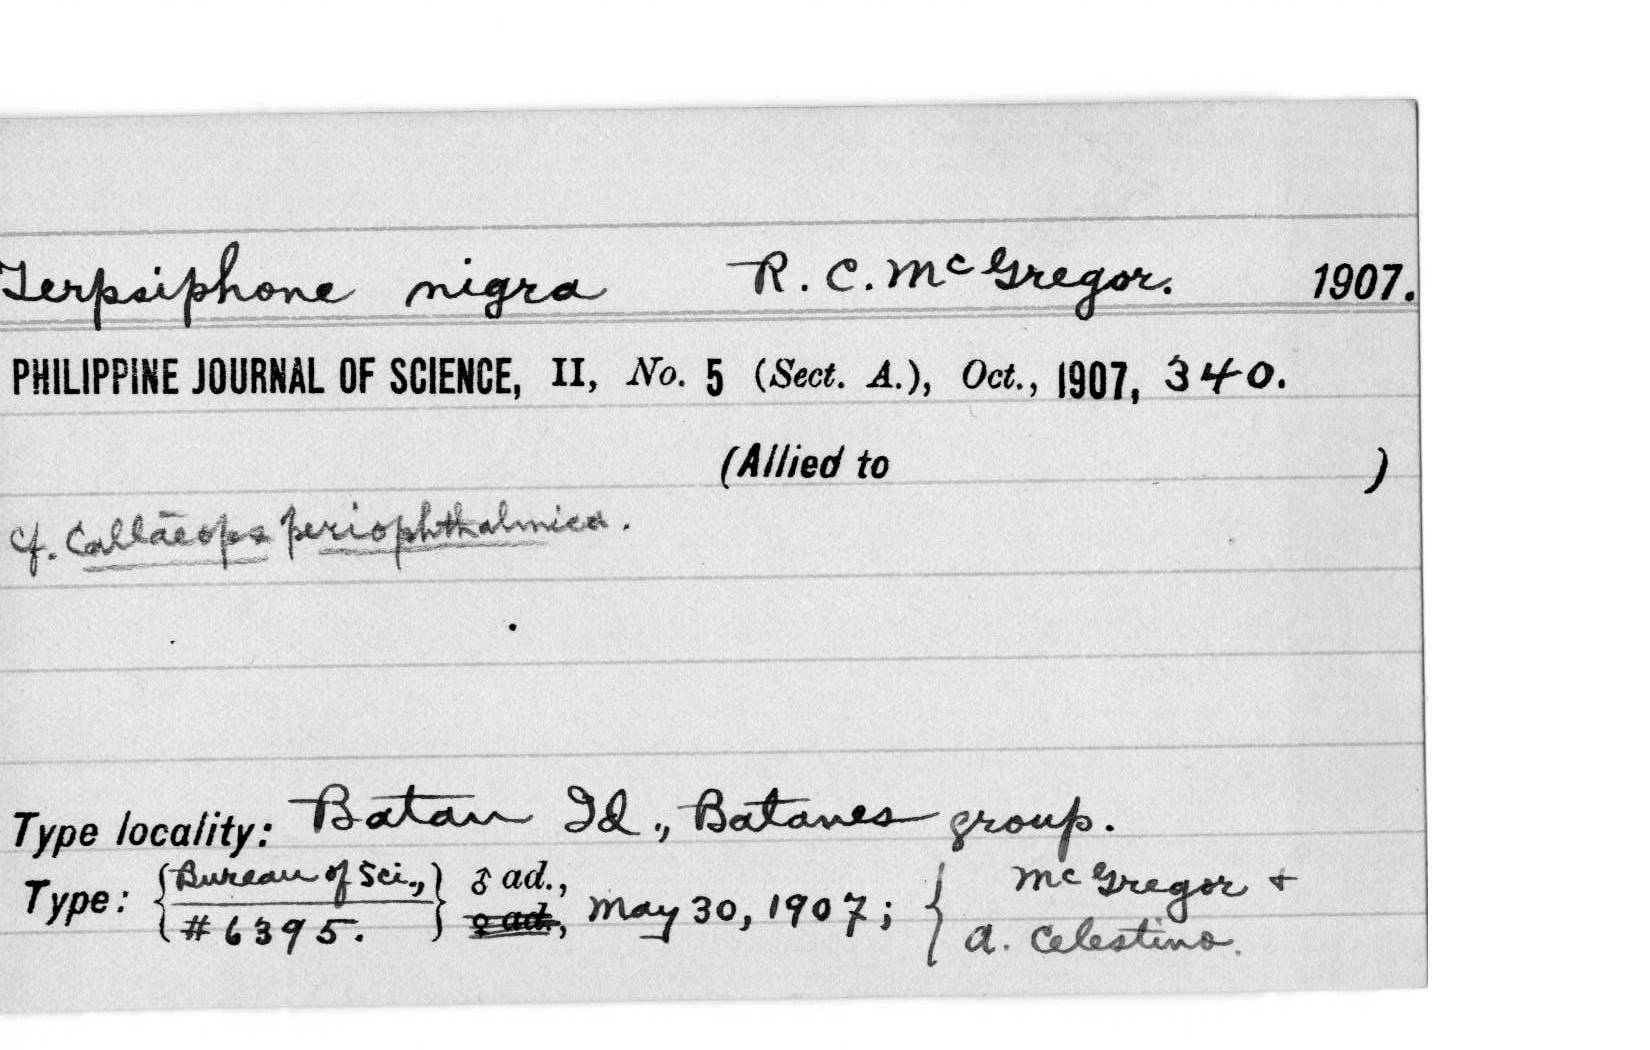 Terpsiphone nigra R. C. McGregor. 1907.
PHILIPPINE JOURNAL OF SCIENCE, II, No. 5 (Sect. A.), Oct., 1907, 340.
(Allied to )
cf. Callaeops periophthalmica.
Type locality: Batan Id., Batanes group.
Type: {Bureau of Sci., #6395.} ♂ ad., ♀ ad., May 30, 1907; { McGregor + A. Celestino.